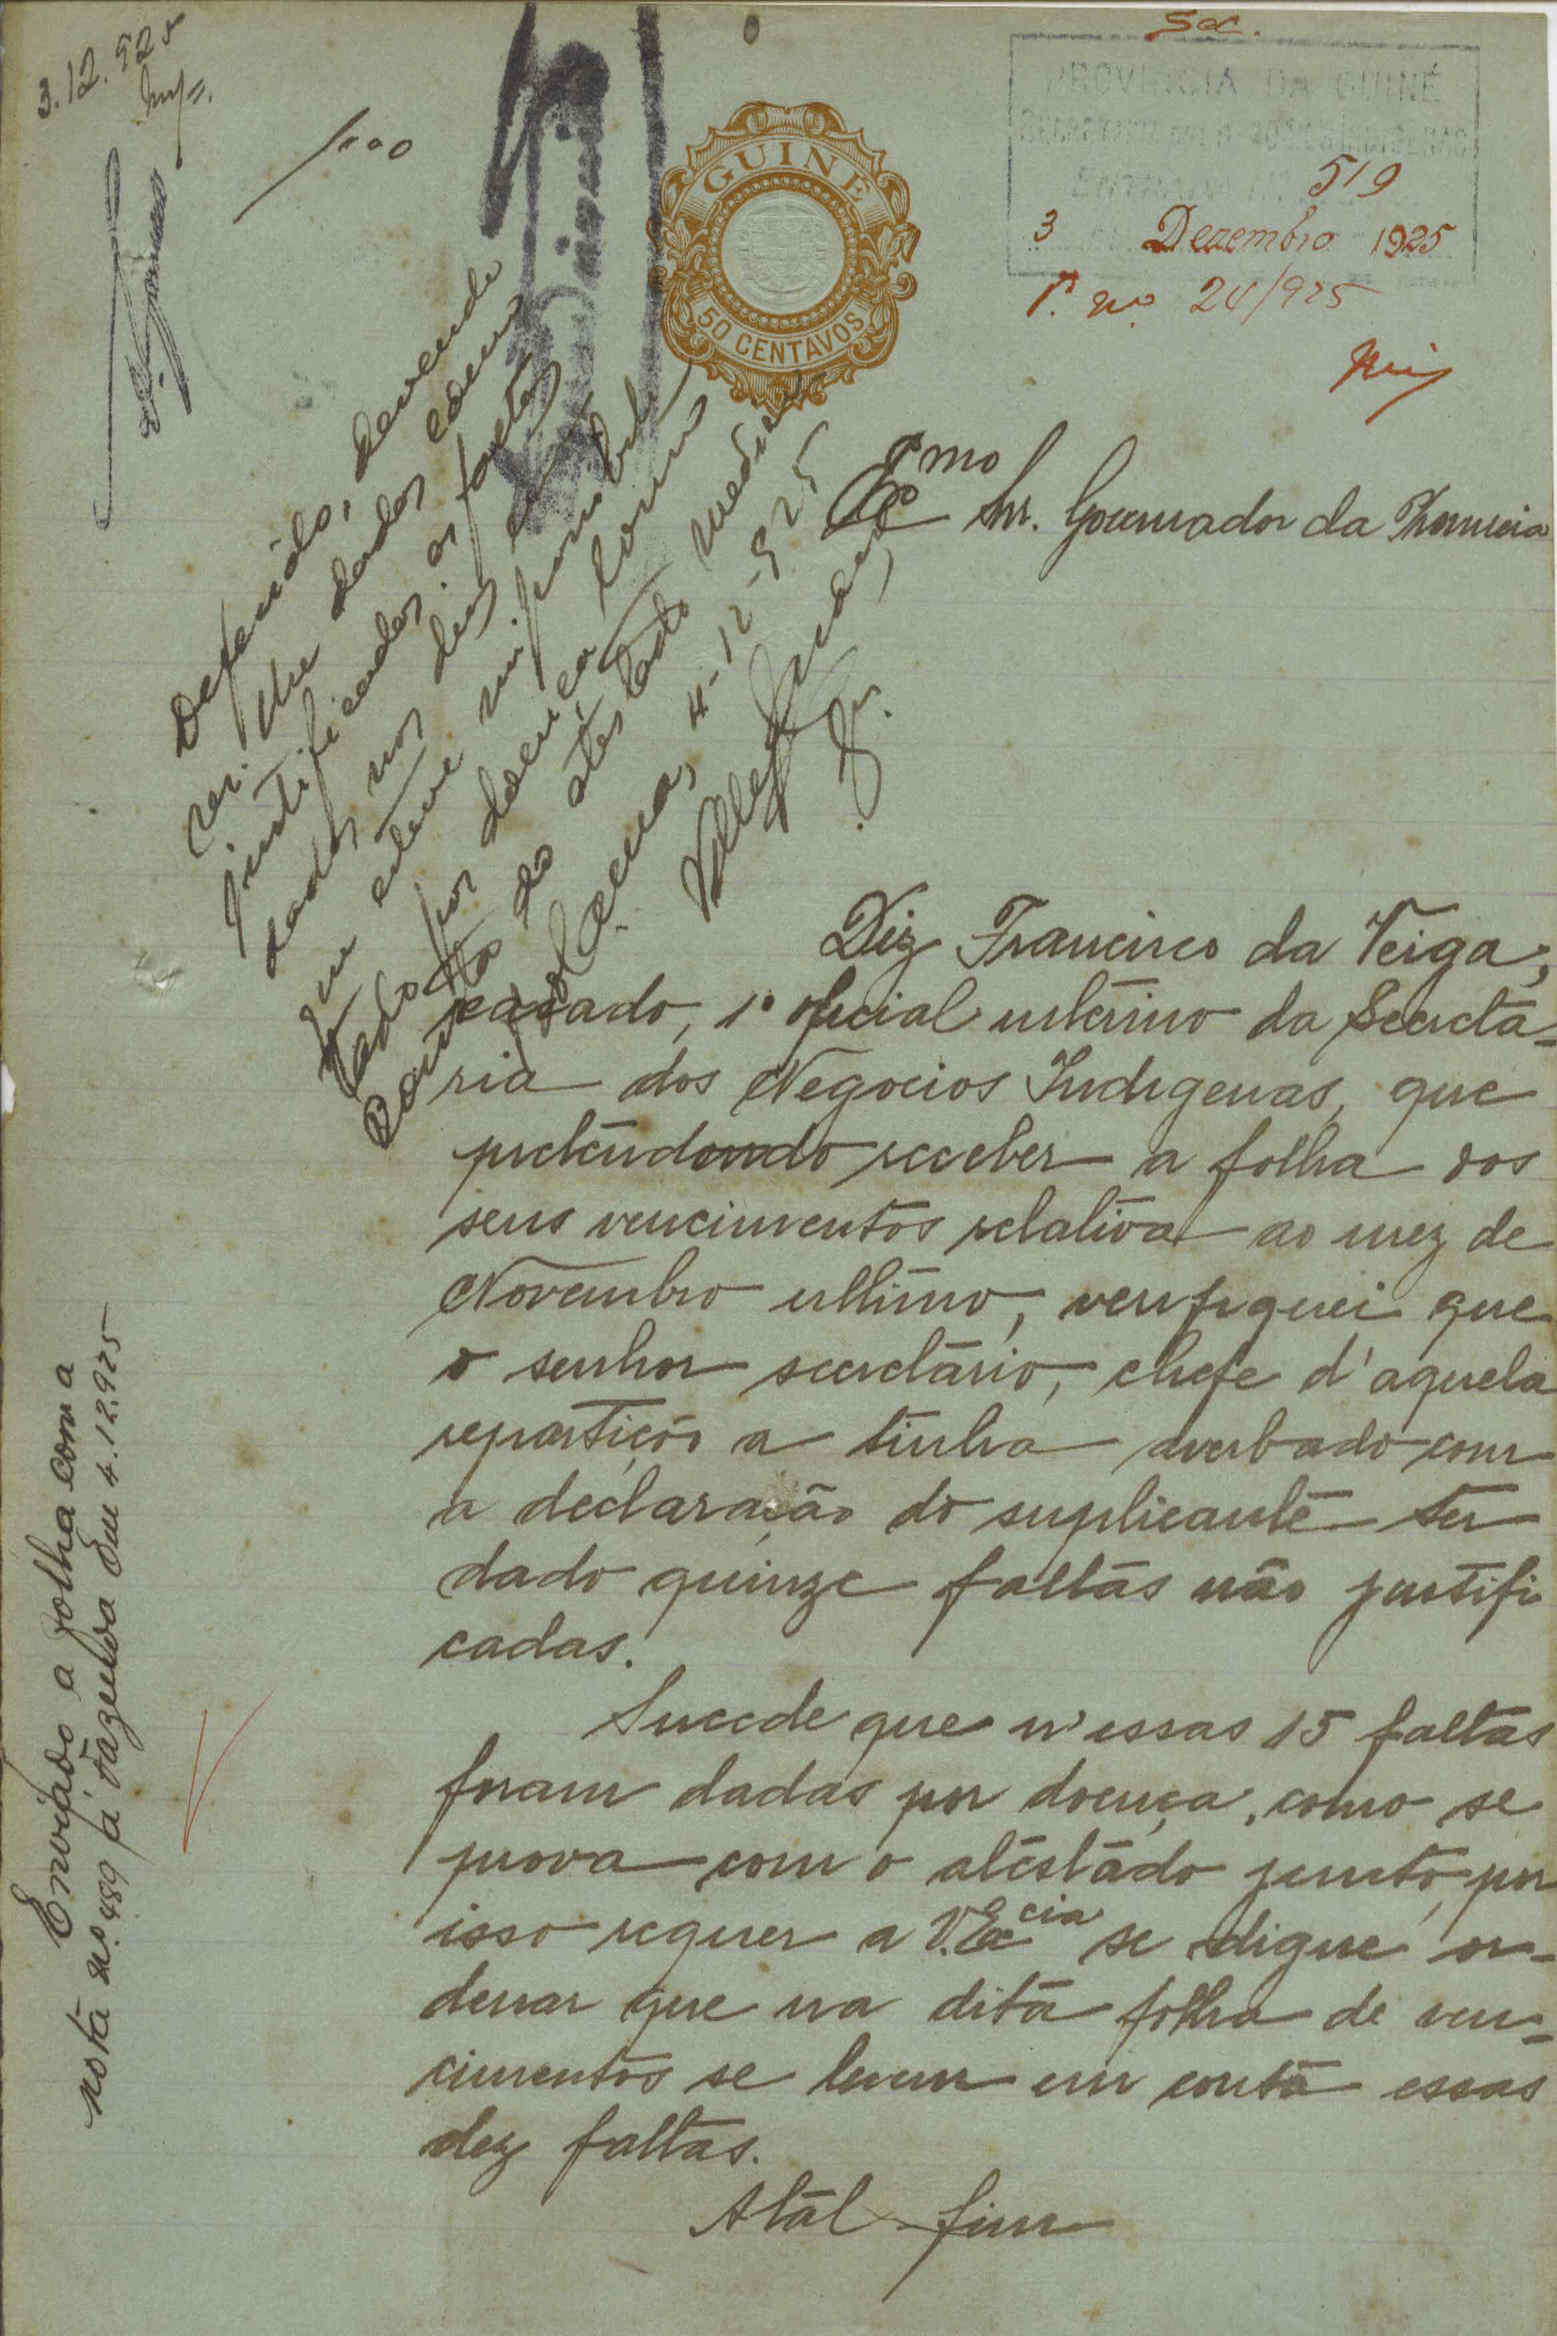 3.12.925
1$00
GUINÉ
50 CENTAVOS
Sec.
PROVINCIA DA GUINÉ
ENTRADA Nº 519
3 Dezembro 1925
P. nº 24/925
Exmo Snr. Governador da Provincia
Deferido, devendo
ser-lhe dadas como
justificadas as faltas
dadas nos dias em
que esteve impossibili
tado por doença como
consta do atestado medico
Bolama, 4-12-925
Diz Francisco da Veiga,
casado, 1º oficial interino da Secreta=
ria dos Negocios Indigenas, que
pretendondo receber a folha dos
seus vencimentos relativa ao mez de
Novembro ultimo, verifiquei que
o senhor secretario, chefe d'aquela
repartição a tinha averbado com
a declaração do suplicante ter
dado quinze faltas não justifi
cadas.
Sucede que n'essas 15 faltas
foram dadas por doença, como se
prova com o atestado junto, por
isso requer a V. Excia se digne or-
denar que na dita folha de ven=
cimentos se levem em conta essas
dez faltas.
Atál fim
Enviado a folha com a
nota nº 489 á Fazenda Em 4.12.925